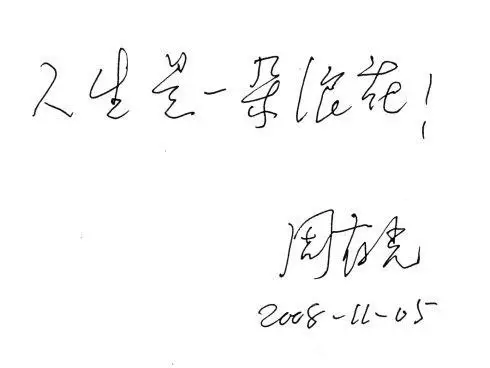 人生是一朵浪花！
周有光
2008-11-05